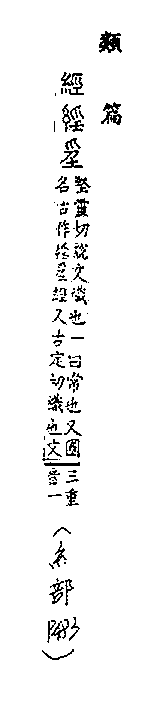 類篇
經經坙
堅靈切說文織也一曰常也又國
名古作坙經又古定切織也文
三重
音一
(糸部)